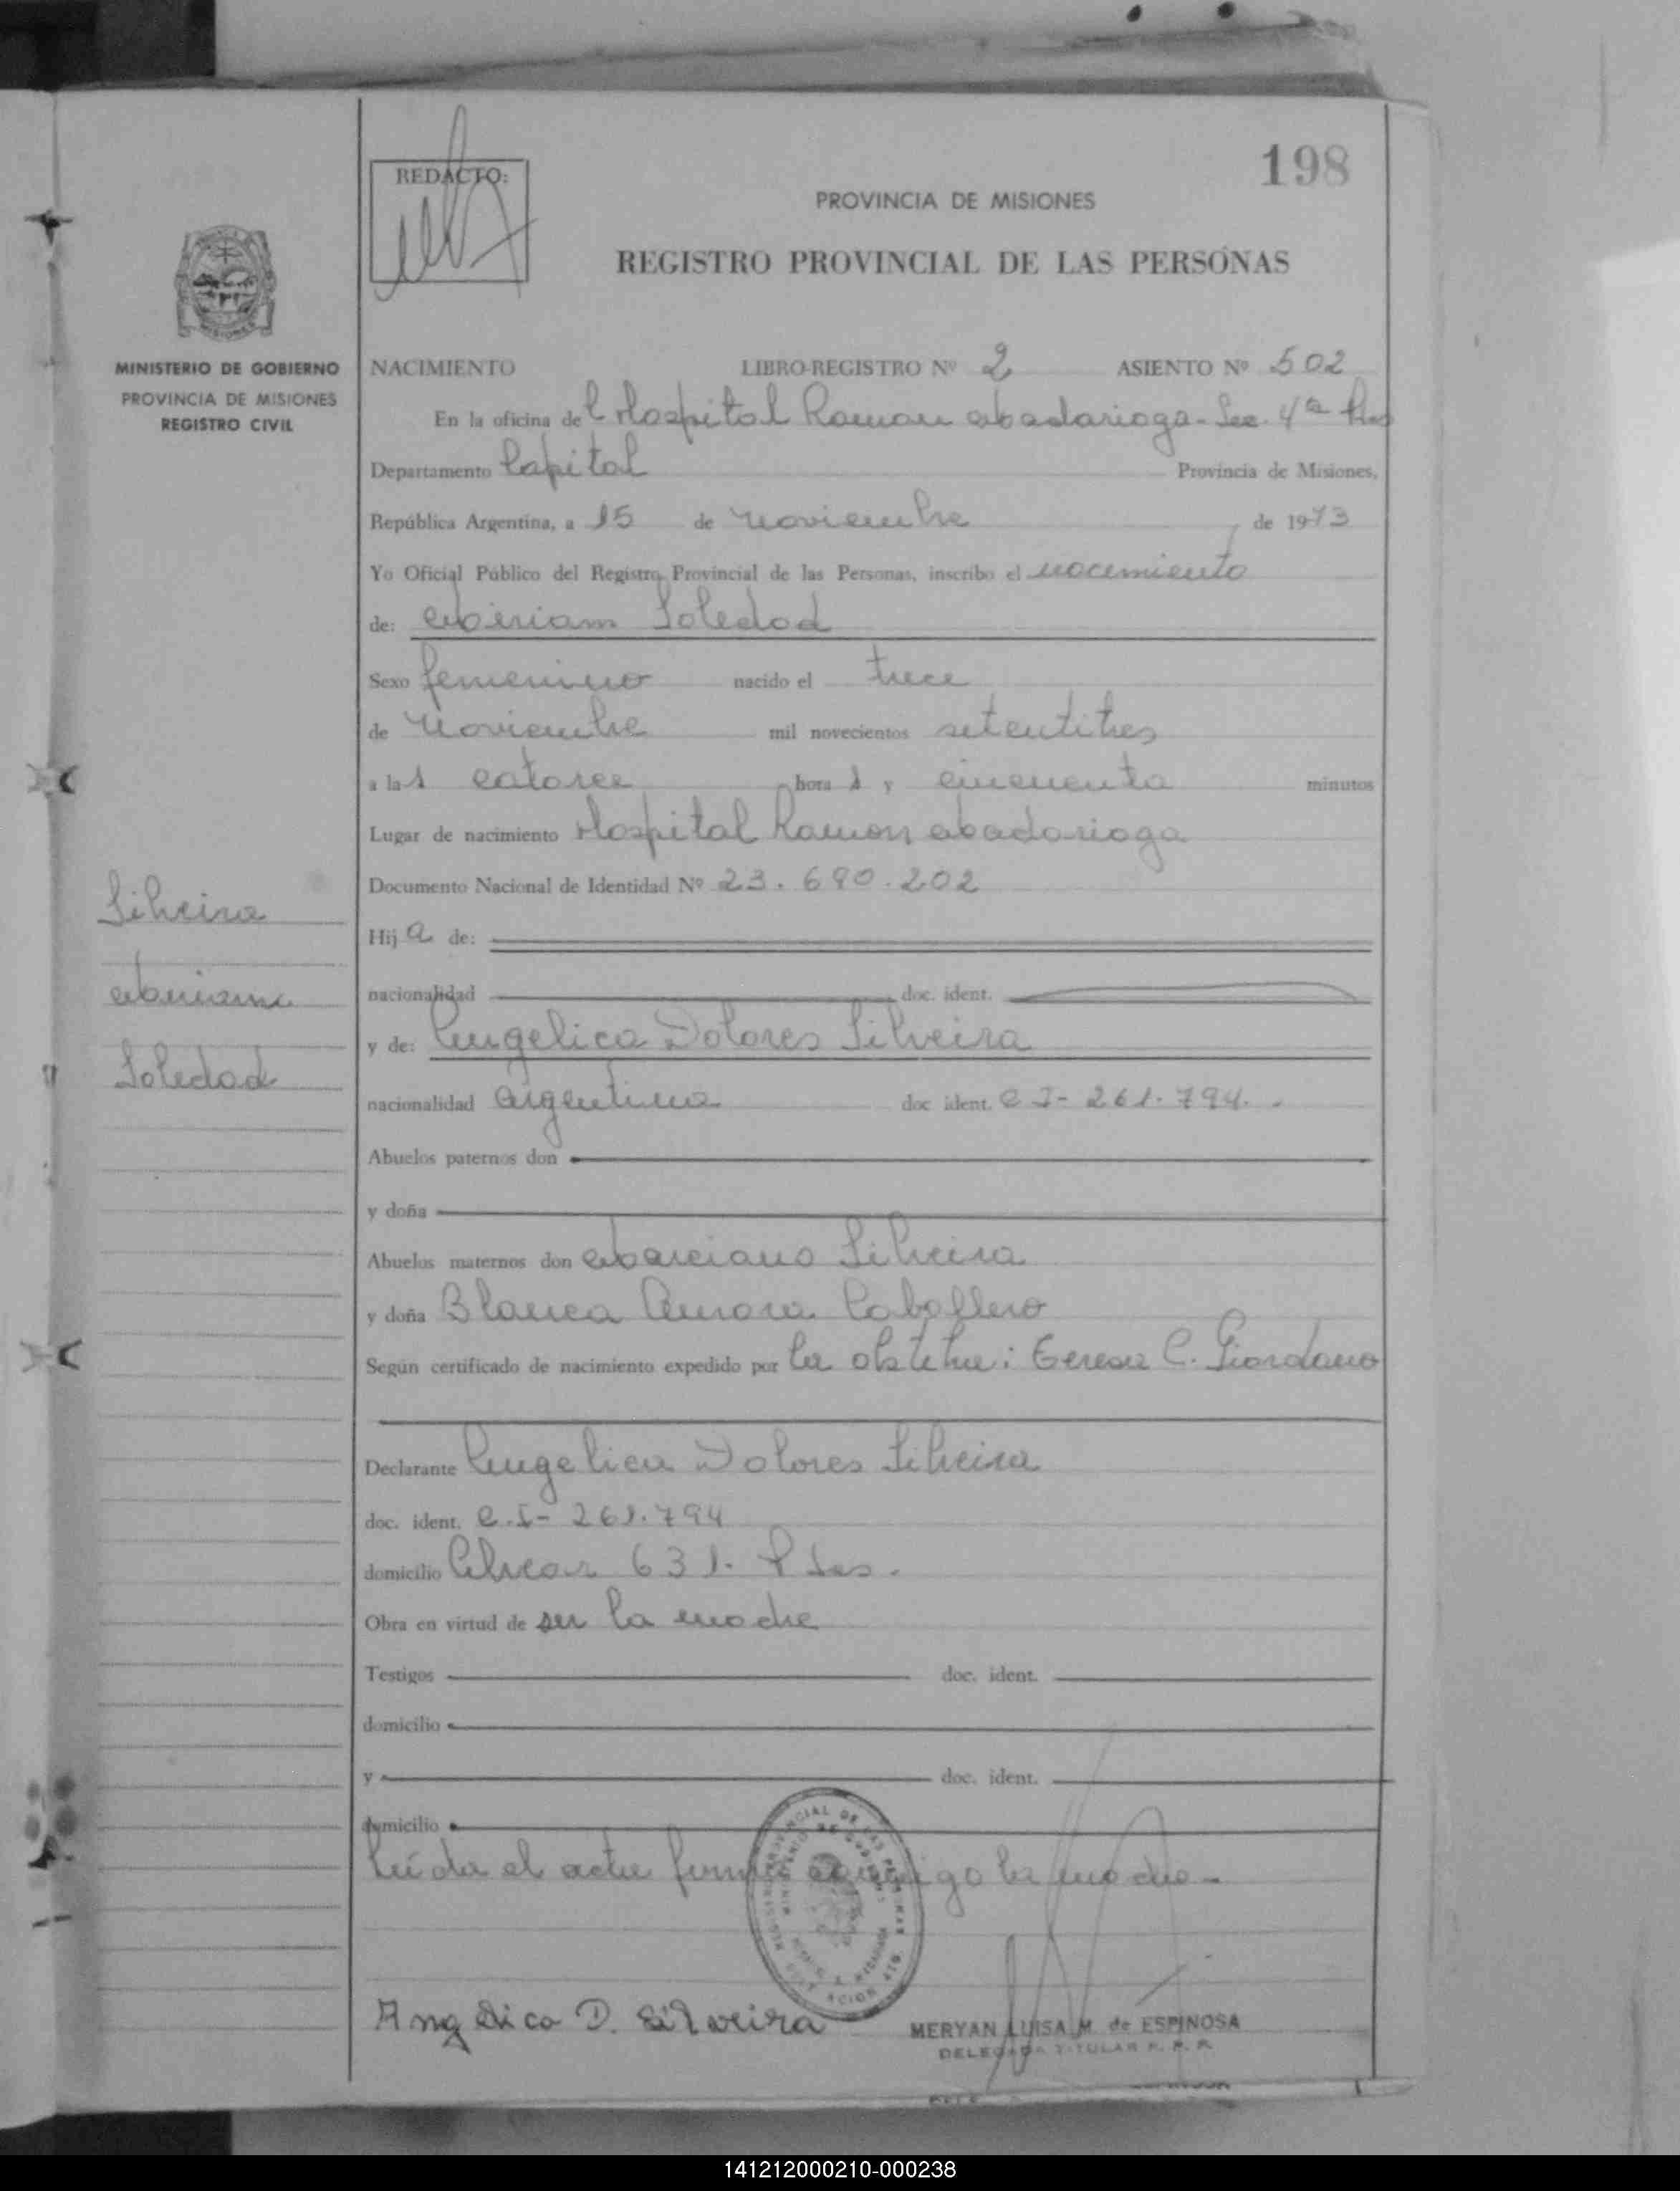 198
REDACTO:
PROVINCIA DE MISIONES
REGISTRO PROVINCIAL DE LAS PERSONAS
MISIONES
MINISTERIO DE GOBIERNO
PROVINCIA DE MISIONES
REGISTRO CIVIL
NACIMIENTO LIBRO-REGISTRO Nº 2 ASIENTO Nº 502
En la oficina del Hospital Ramon Madariaga - Sec. 4ª
Departamento Capital Provincia de Misiones,
República Argentina, a 15 de Noviembre de 1973
Yo Oficial Público del Registro Provincial de las Personas, inscribo el nacimiento
de: Miriam Soledad
Sexo femenino nacido el trece
de Noviembre mil novecientos setentitres
a las catorce horas y cincuenta minutos
Lugar de nacimiento Hospital Ramon Madariaga
Documento Nacional de Identidad Nº 23.690.202
Hija de:
nacionalidad doc. ident.
y de: Angelica Dolores Silveira
nacionalidad Argentina doc ident. C I - 261.794.
Abuelos paternos don
y doña
Abuelos maternos don Marciano Silveira
y doña Blanca Aurora Caballero
Según certificado de nacimiento expedido por la obstetra: Teresa C. Giordano
Declarante Angelica Dolores Silveira
doc. ident. C.I - 261.794
domicilio Alvear 631. Pdas.
Obra en virtud de ser la madre
Testigos doc. ident.
domicilio
y doc. ident.
domicilio
Leída el acta firma conmigo la madre.-
Angelica D. Silveira
MERYAN LUISA M. de ESPINOSA
DELEGADA TITULAR R. P. P.
Silveira
Miriam
Soledad
141212000210-000238